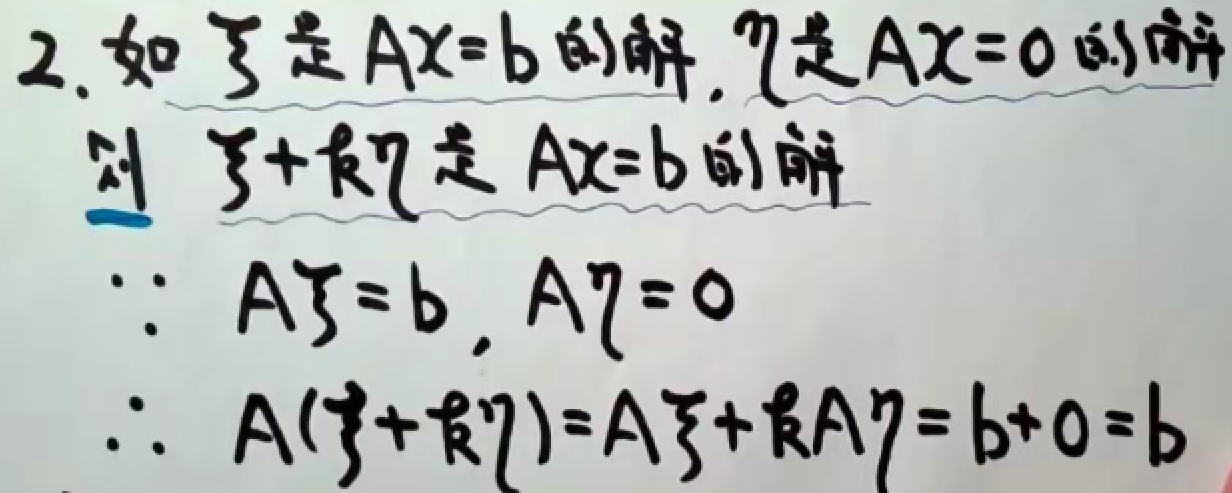 2. 如 ξ 是 Ax=b 的解, η是 Ax=0 的解
则 ξ+kη 是 Ax=b 的解
∵ Aξ=b, Aη=0
∴ A(ξ+kη)=Aξ+kAη=b+0=b